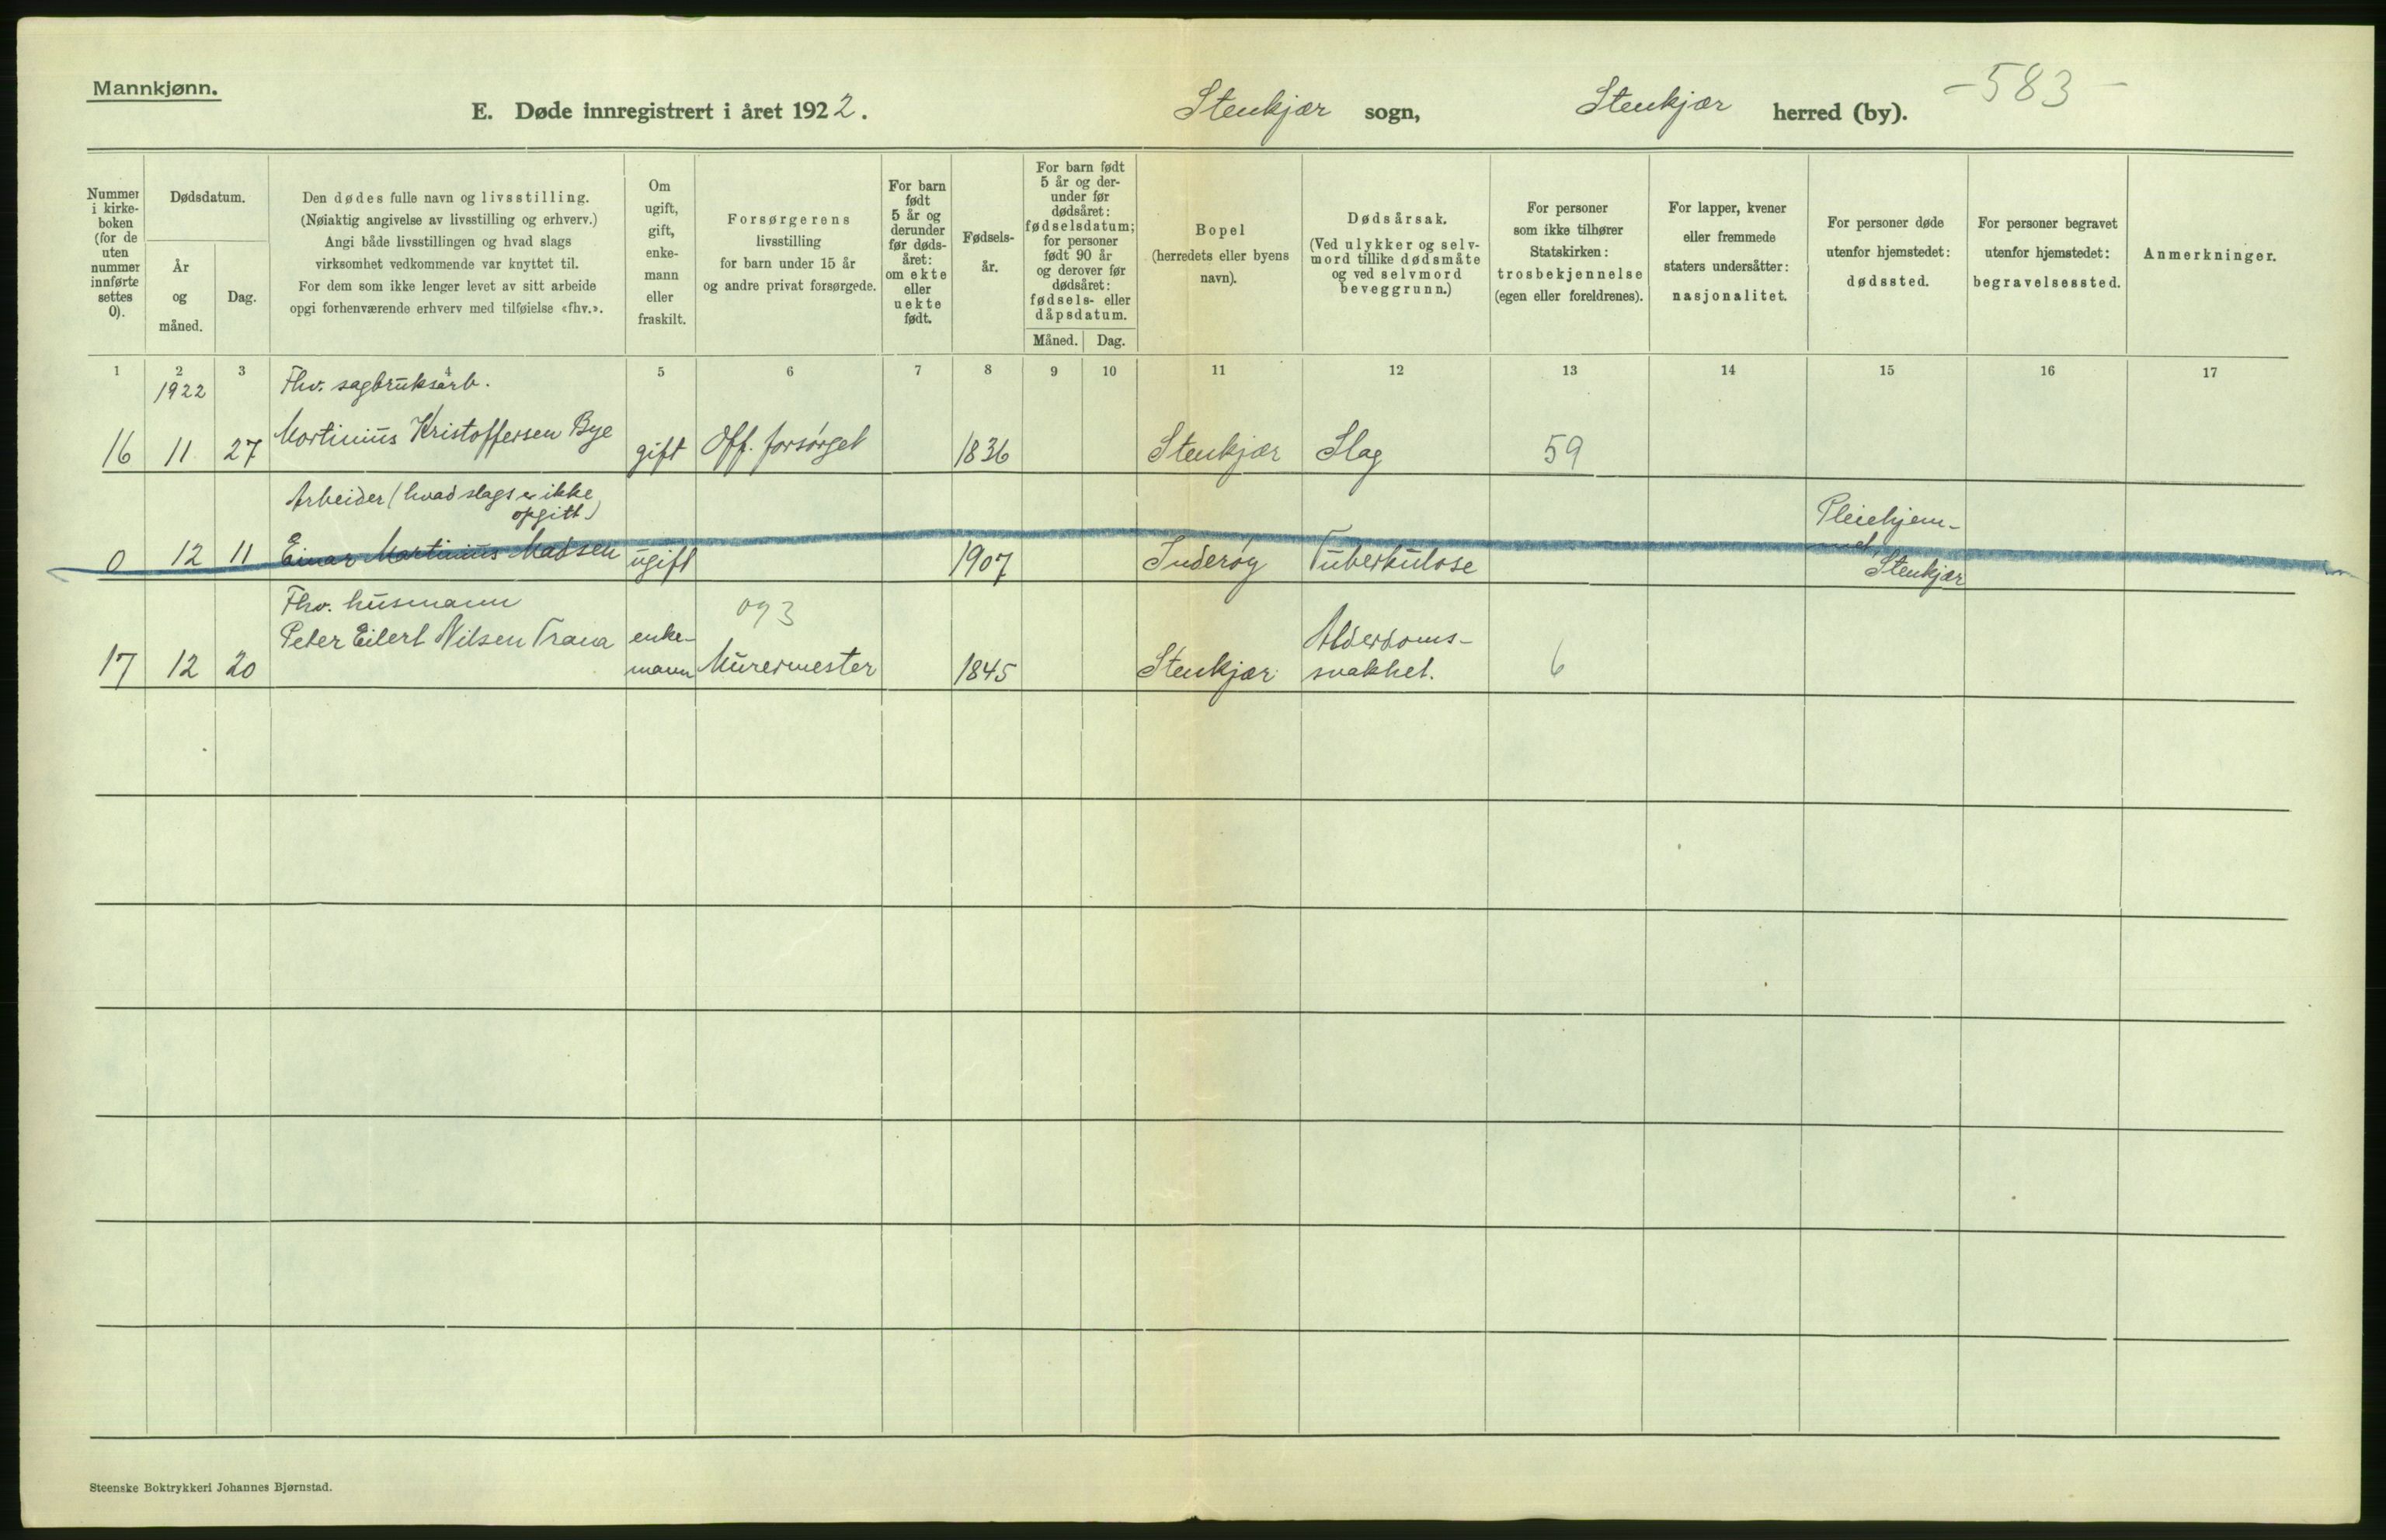 Mannkjønn.
E. Døde innregistrert i året 1922.
Stenkjær sogn,
Stenkjær herred (by).
-583-
Nummer i kirke-boken (for de uten nummer innførte settes 0).
Dødsdatum.
År og måned.
Dag.
Den dødes fulle navn og livsstilling.
(Nøiaktig angivelse av livsstilling og erhverv.)
Angi både livsstillingen og hvad slags
virksomhet vedkommende var knyttet til.
For dem som ikke lenger levet av sitt arbeide
opgi forhenværende erhverv med tilføielse «fhv.».
Om ugift, gift, enke-mann eller fraskilt.
Forsørgerens
livsstilling
for barn under 15 år
og andre privat forsørgede.
For barn født 5 år og derunder før døds-året: om ekte eller uekte født.
Fødsels-år.
For barn født 5 år og der-under før dødsåret: fødselsdatum; for personer født 90 år og derover før dødsåret: fødsels- eller dåpsdatum.
Måned. Dag.
Bopel
(herredets eller byens
navn).
Dødsårsak.
(Ved ulykker og selv-
mord tillike dødsmåte
og ved selvmord
beveggrunn.)
For personer
som ikke tilhører
Statskirken:
trosbekjennelse
(egen eller foreldrenes).
For lapper, kvener
eller fremmede
staters undersåtter:
nasjonalitet.
For personer døde
utenfor hjemstedet:
dødssted.
For personer begravet
utenfor hjemstedet:
begravelsessted.
Anmerkninger.
1 2 3 4 5 6 7 8 9 10 11 12 13 14 15 16 17
1922 Fhv. sagbruksarb.
16 11 27 Martinius Kristoffersen Bye gift Off. forsørget 1836 Stenkjær Slag 59
Arbeider (hvad slags er ikke
opgitt)
Pleiehjem-
met,
0 12 11 Einar Martinius Madsen ugift 1907 Inderøy Tuberkulose Stenkjær
Fhv. husmann 093
Peter Eilert Nilsen Trana enke- Alderdoms-
17 12 20 mann Murermester 1845 Stenkjær svakhet. 6
Steenske Boktrykkeri Johannes Bjørnstad.